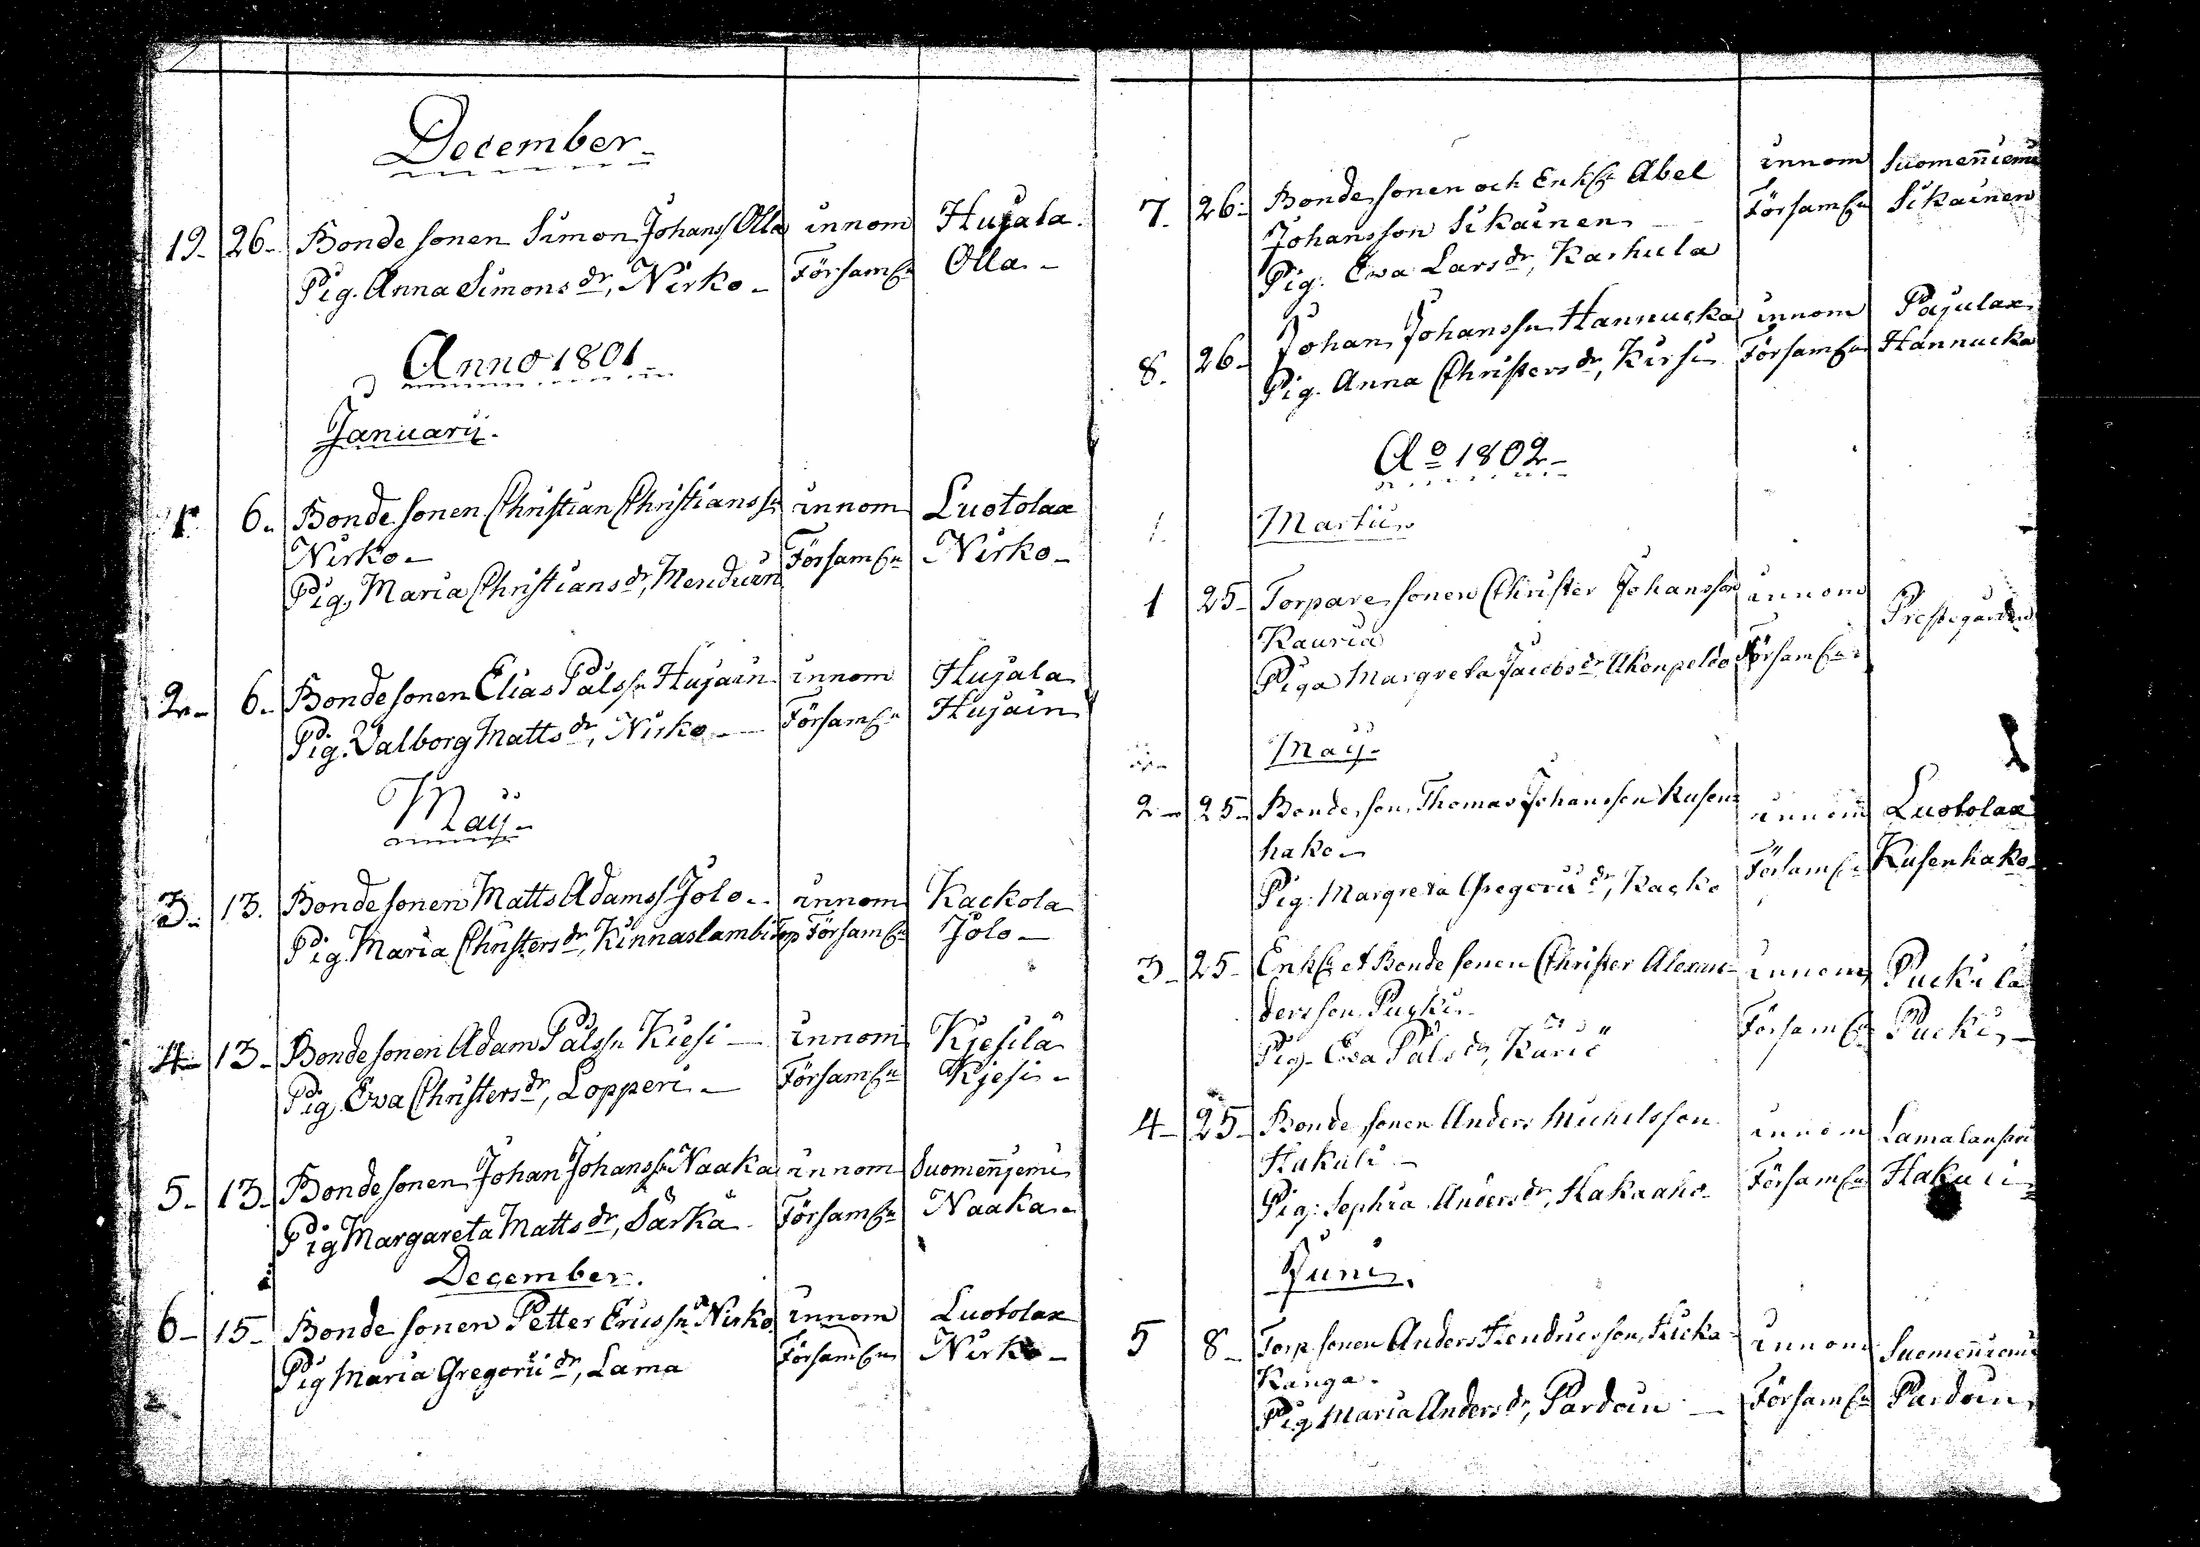 December
19. 26. Bonde sonen Simon Johanss Olla innom Hujala
Pig. Anna Simons dr, Nirko Församl:n Olla
Anno 1801
Januarii
1. 6. Bonde sonen Christian Christianss:n innom Luotolax
Nirko Församl:n Nirko
Pig. Maria Christians dr,
2. 6. Bonde sonen Elias Pålss:n Hujain innom Hujala
Pig. Valborg Matts dr, Nirko Församl:n Hujain
Maij
3. 13. Bonde sonen Matts Adamss Jolo innom Kackola
Pig. Maria Christers dr, Kinnaslambi Torp Församl:n Jolo
4. 13. Bonde sonen Adam Pålss:n Kiesi innom Kjesilä
Pig. Eva Christers dr, Lopperi Församl:n Kjesi
5. 13. Bonde sonen Johan Johanss:n Naaka innom Suomenjemi
Pig Margareta Matts dr, Särkä Församl:n Naaka
December
6. 15. Bonde sonen Petter Ericss:n Nirko innom Luotolax
Pig Maria Gregorii dr, Lama Församl:n Nirko
7. 26. Bonde sonen och Enkl:n Abel innom Suomenniemi
Johansson Sikainen Församl:n Sikainen
Pig. Ewa Lars dr, Karhula
8. 26. Johan Johanss:n Hannucka innom Pajulax
Pig. Anna Christers dr, Kirsi Församl:n Hannucka
Ao 1802
Martii
1 25 Torpare sonen Christer Johansson innom Prestegården
Kauria
Piga Margreta Jacobs dr Ukonpeldo Församl:n
Maij
2 25 Bonde son. Thomas Johansson Kusen= innom Luotolax
hako Församl:n Kusenhako
Pig. Margreta Gregorii dr, Kacko
3 25 Enkl:n et Bonde sonen Christer Alexan= innom Puckila
dersson Pucki Församl:n Pucki
Pig. Eva Påls dr,
4 25 Bonde sonen Anders Michilsson innom
Hakuli Församl:n Hakuli
Pig. Sophia Anders dr,
Junii
5 8 Torp sonen Anders Hendricsson Kucka= innom Suomenniemi
Kanga
Pig Maria Anders dr, Pardain Församl:n Pardain